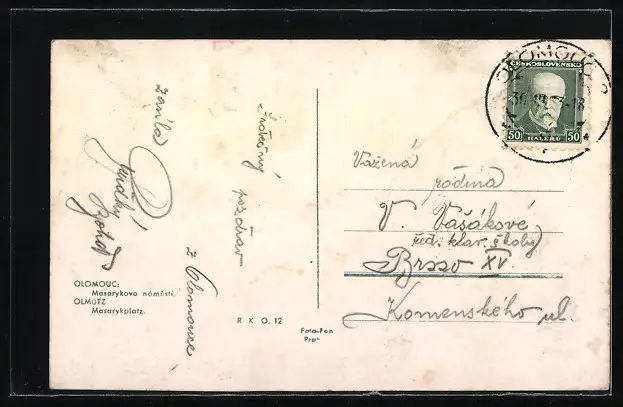 OLOMOUC 2
ČESKOSLOVENSKO
50 HALÉŘŮ 50
Srdečný
pozdrav
z Olomouce
zasílá
Vážená
rodina
V. Vašákové
řed. klav. školy
Brno XV.
Komenského ul.
OLOMOUC:
Masarykovo náměstí.
OLMÜTZ
Masarykplatz.
R K O. 12
Foto-Fon